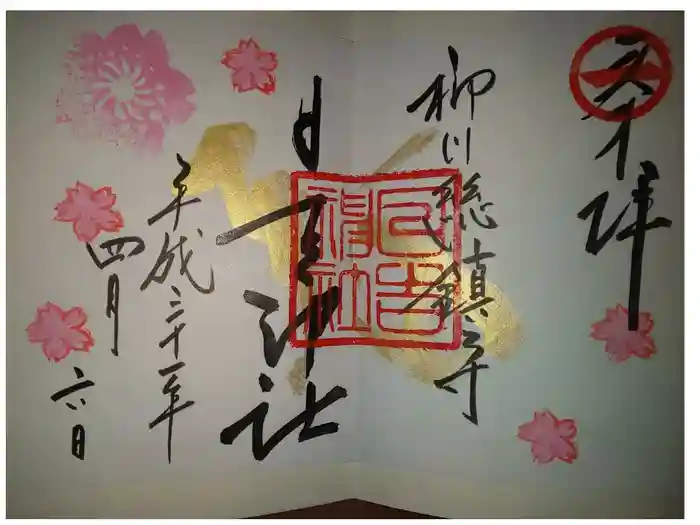 奉拝
柳川総鎮守
日吉神社
日吉神社
平成三十一年
四月
六日